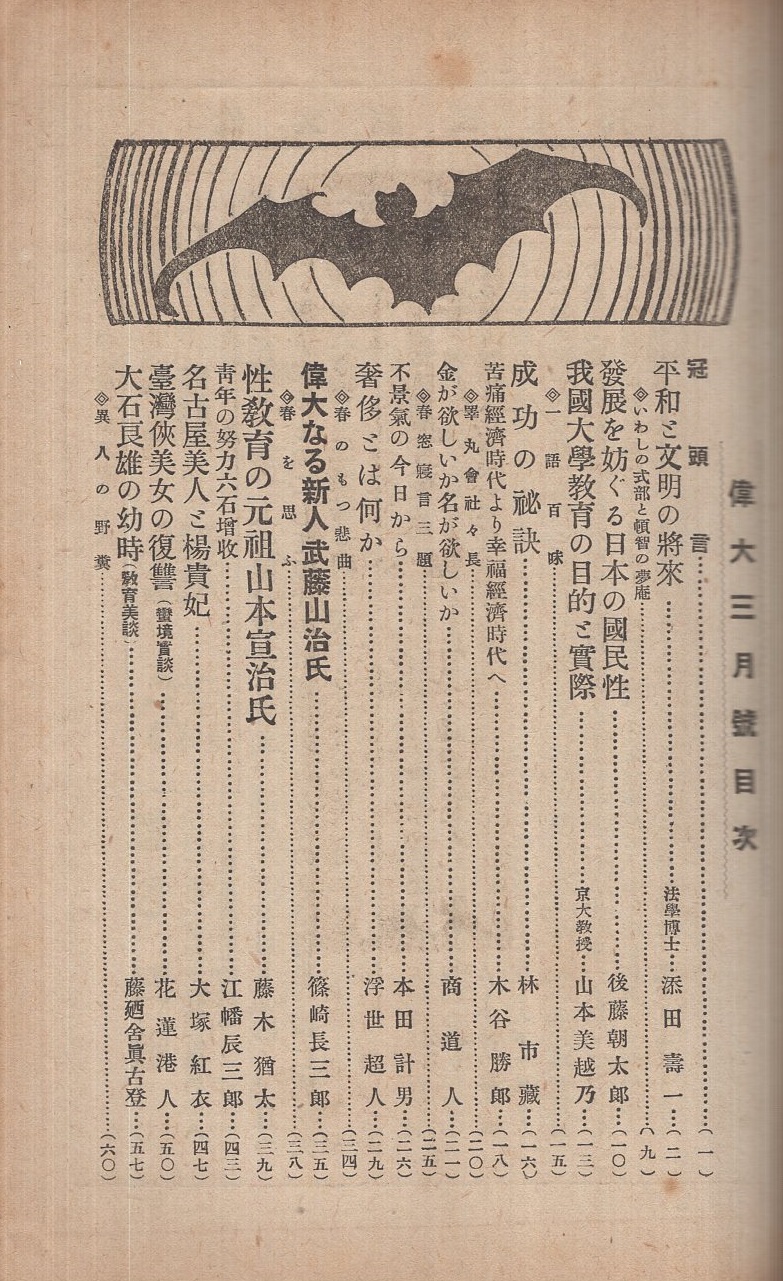 偉大三月號目次
冠頭言……(一)
平和と文明の將來……法學博士…添田壽一…(二)
◇いわしの式部と頓智の夢庵……(九)
發展を妨ぐる日本の國民性……後藤朝太郎…(一〇)
我國大學教育の目的と實際……京大教授…山本美越乃…(一三)
◇一語百味……(一五)
成功の祕訣……林市藏…(一六)
苦痛經濟時代より幸福經濟時代へ……木谷勝郎…(一八)
◇睪丸會社々長……(二〇)
金が欲しいか名が欲しいか……商道人…(二一)
◇春窓寢言三題……(二五)
不景氣の今日から……本田計男…(二六)
奢侈とは何か……浮世超人…(二九)
◇春のもつ悲曲……(三四)
偉大なる新人武藤山治氏……篠崎長三郎…(三五)
◇春を思ふ……(三八)
性敎育の元祖山本宣治氏……藤木猶太…(三九)
靑年の努力六石增收……江幡辰三郎…(四三)
名古屋美人と楊貴妃……大塚紅衣…(四七)
臺灣俠美女の復讐(蠻境實談)……花蓮港人…(五〇)
大石良雄の幼時(敎育美談)……藤廼舍眞古登…(五七)
◇異人の野糞……(六〇)